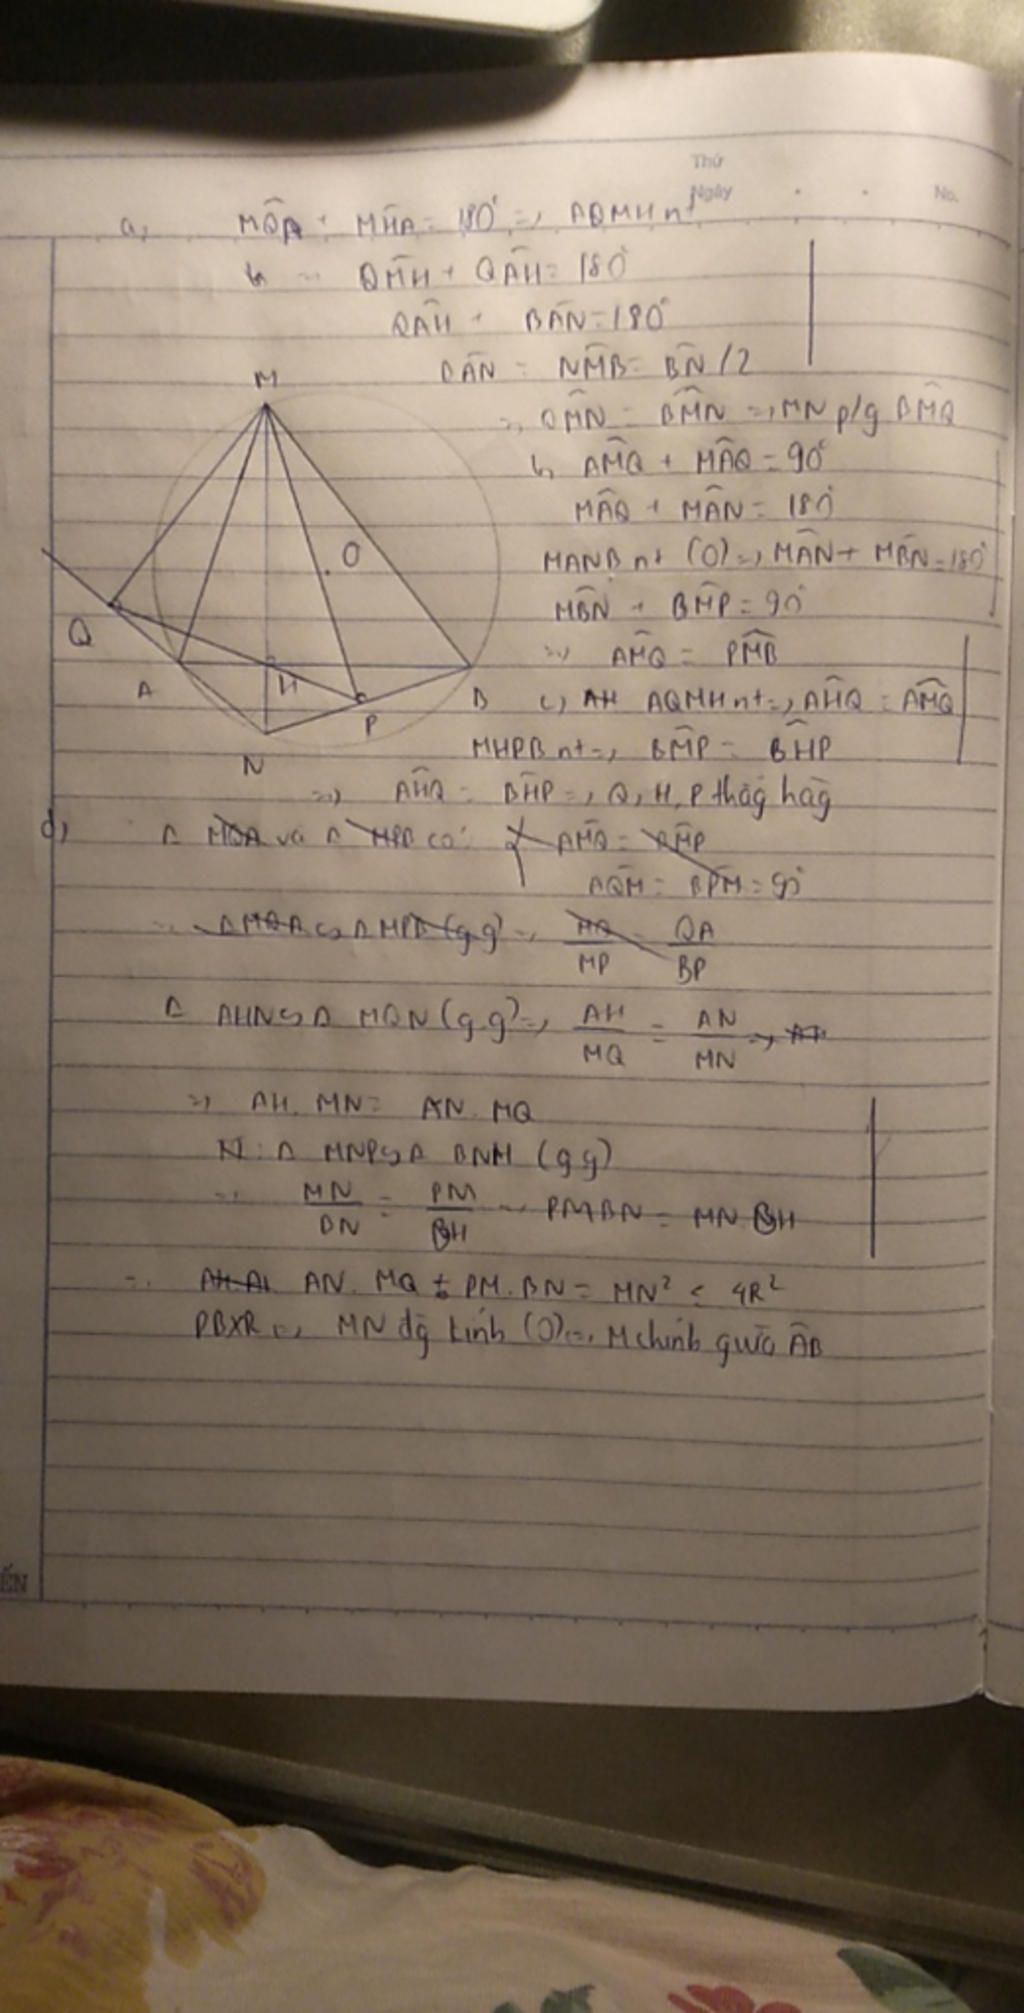 Thứ
Ngày No.
a, MQ̂A + MĤA = 180° => AQMH nt
QM̂H + QÂH = 180°
QÂH + BÂN = 180°
BÂN = NM̂B = BN̂ /2
=> QM̂N = BM̂N => MN p/g BM̂Q
b, AM̂Q + MÂQ = 90°
MÂQ + MÂN = 180°
MANB nt (O) => MÂN + MB̂N = 180°
MB̂N + BM̂P = 90°
=> AM̂Q = PM̂B
c, AH AQMH nt => AĤQ = AM̂Q
MHPB nt => BM̂P = BĤP
=> AĤQ = BĤP => Q, H, P thăg hàg
M
O
Q
A
H
P
B
N
d, Δ MQA và Δ MPB có: { AM̂Q = BM̂P
AQ̂M = BP̂M = 90°
=> Δ MQA ∽ Δ MPB (g.g) => MQ/MP = QA/BP
Δ AHN ∽ Δ MQN (g.g) => AH/MQ = AN/MN => AH
=> AH. MN = AN. MQ
N: Δ MNP ∽ Δ BNH (g g)
=> MN/BN = PM/BH => PM.BN = MN.BH
=> AN. MQ + PM. BN = MN² ≤ 4R²
=> MN đg kính (O) => M chính giữa ÂB
ẾN